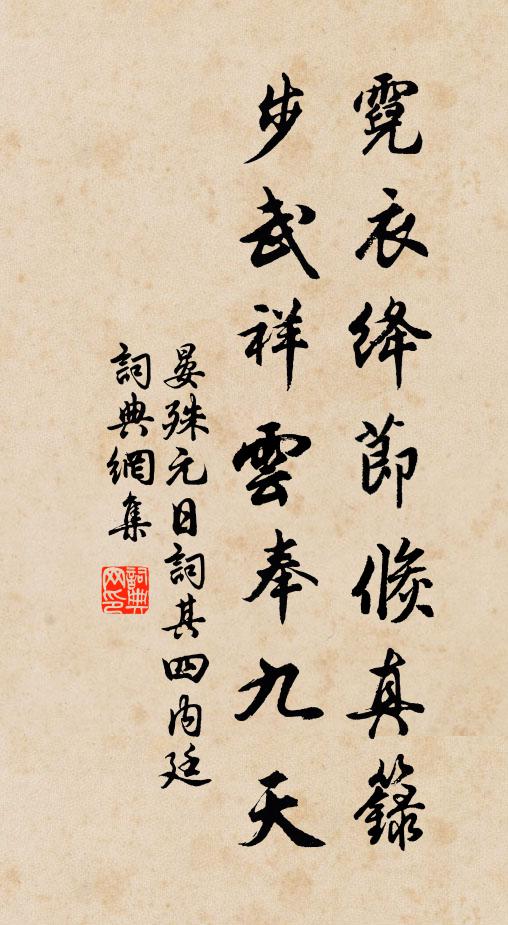 霓衣绛節倏真籙
步武祥雲奉九天
晏殊元日詞其四内廷
詞典網集
詞典网印